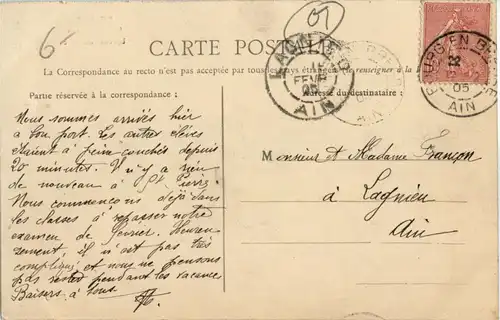 6
01
CARTE POSTALE
La Correspondance au recto n'est pas acceptée par tous les pays étrangers (Se renseigner à la
Partie réservée à la correspondance :
Adresse du destinataire
LAGNIEU
FEVR
05
AIN
BOURG EN BRESSE
05
AIN
Nous sommes arrivés hier
à bon port. Les autres élèves
étaient à peine couchés depuis
20 minutes. Il n'y a rien
de nouveau à St Pierre
Nous commençons déjà dans
les classes à repasser notre
examen de février. Heureu
sement, il n'est pas très
compliqué et nous ne pensons
pas rester pendant les vacances
Baisers à tous.
Monsieur et Madame Françon
à Lagnieu
Ain